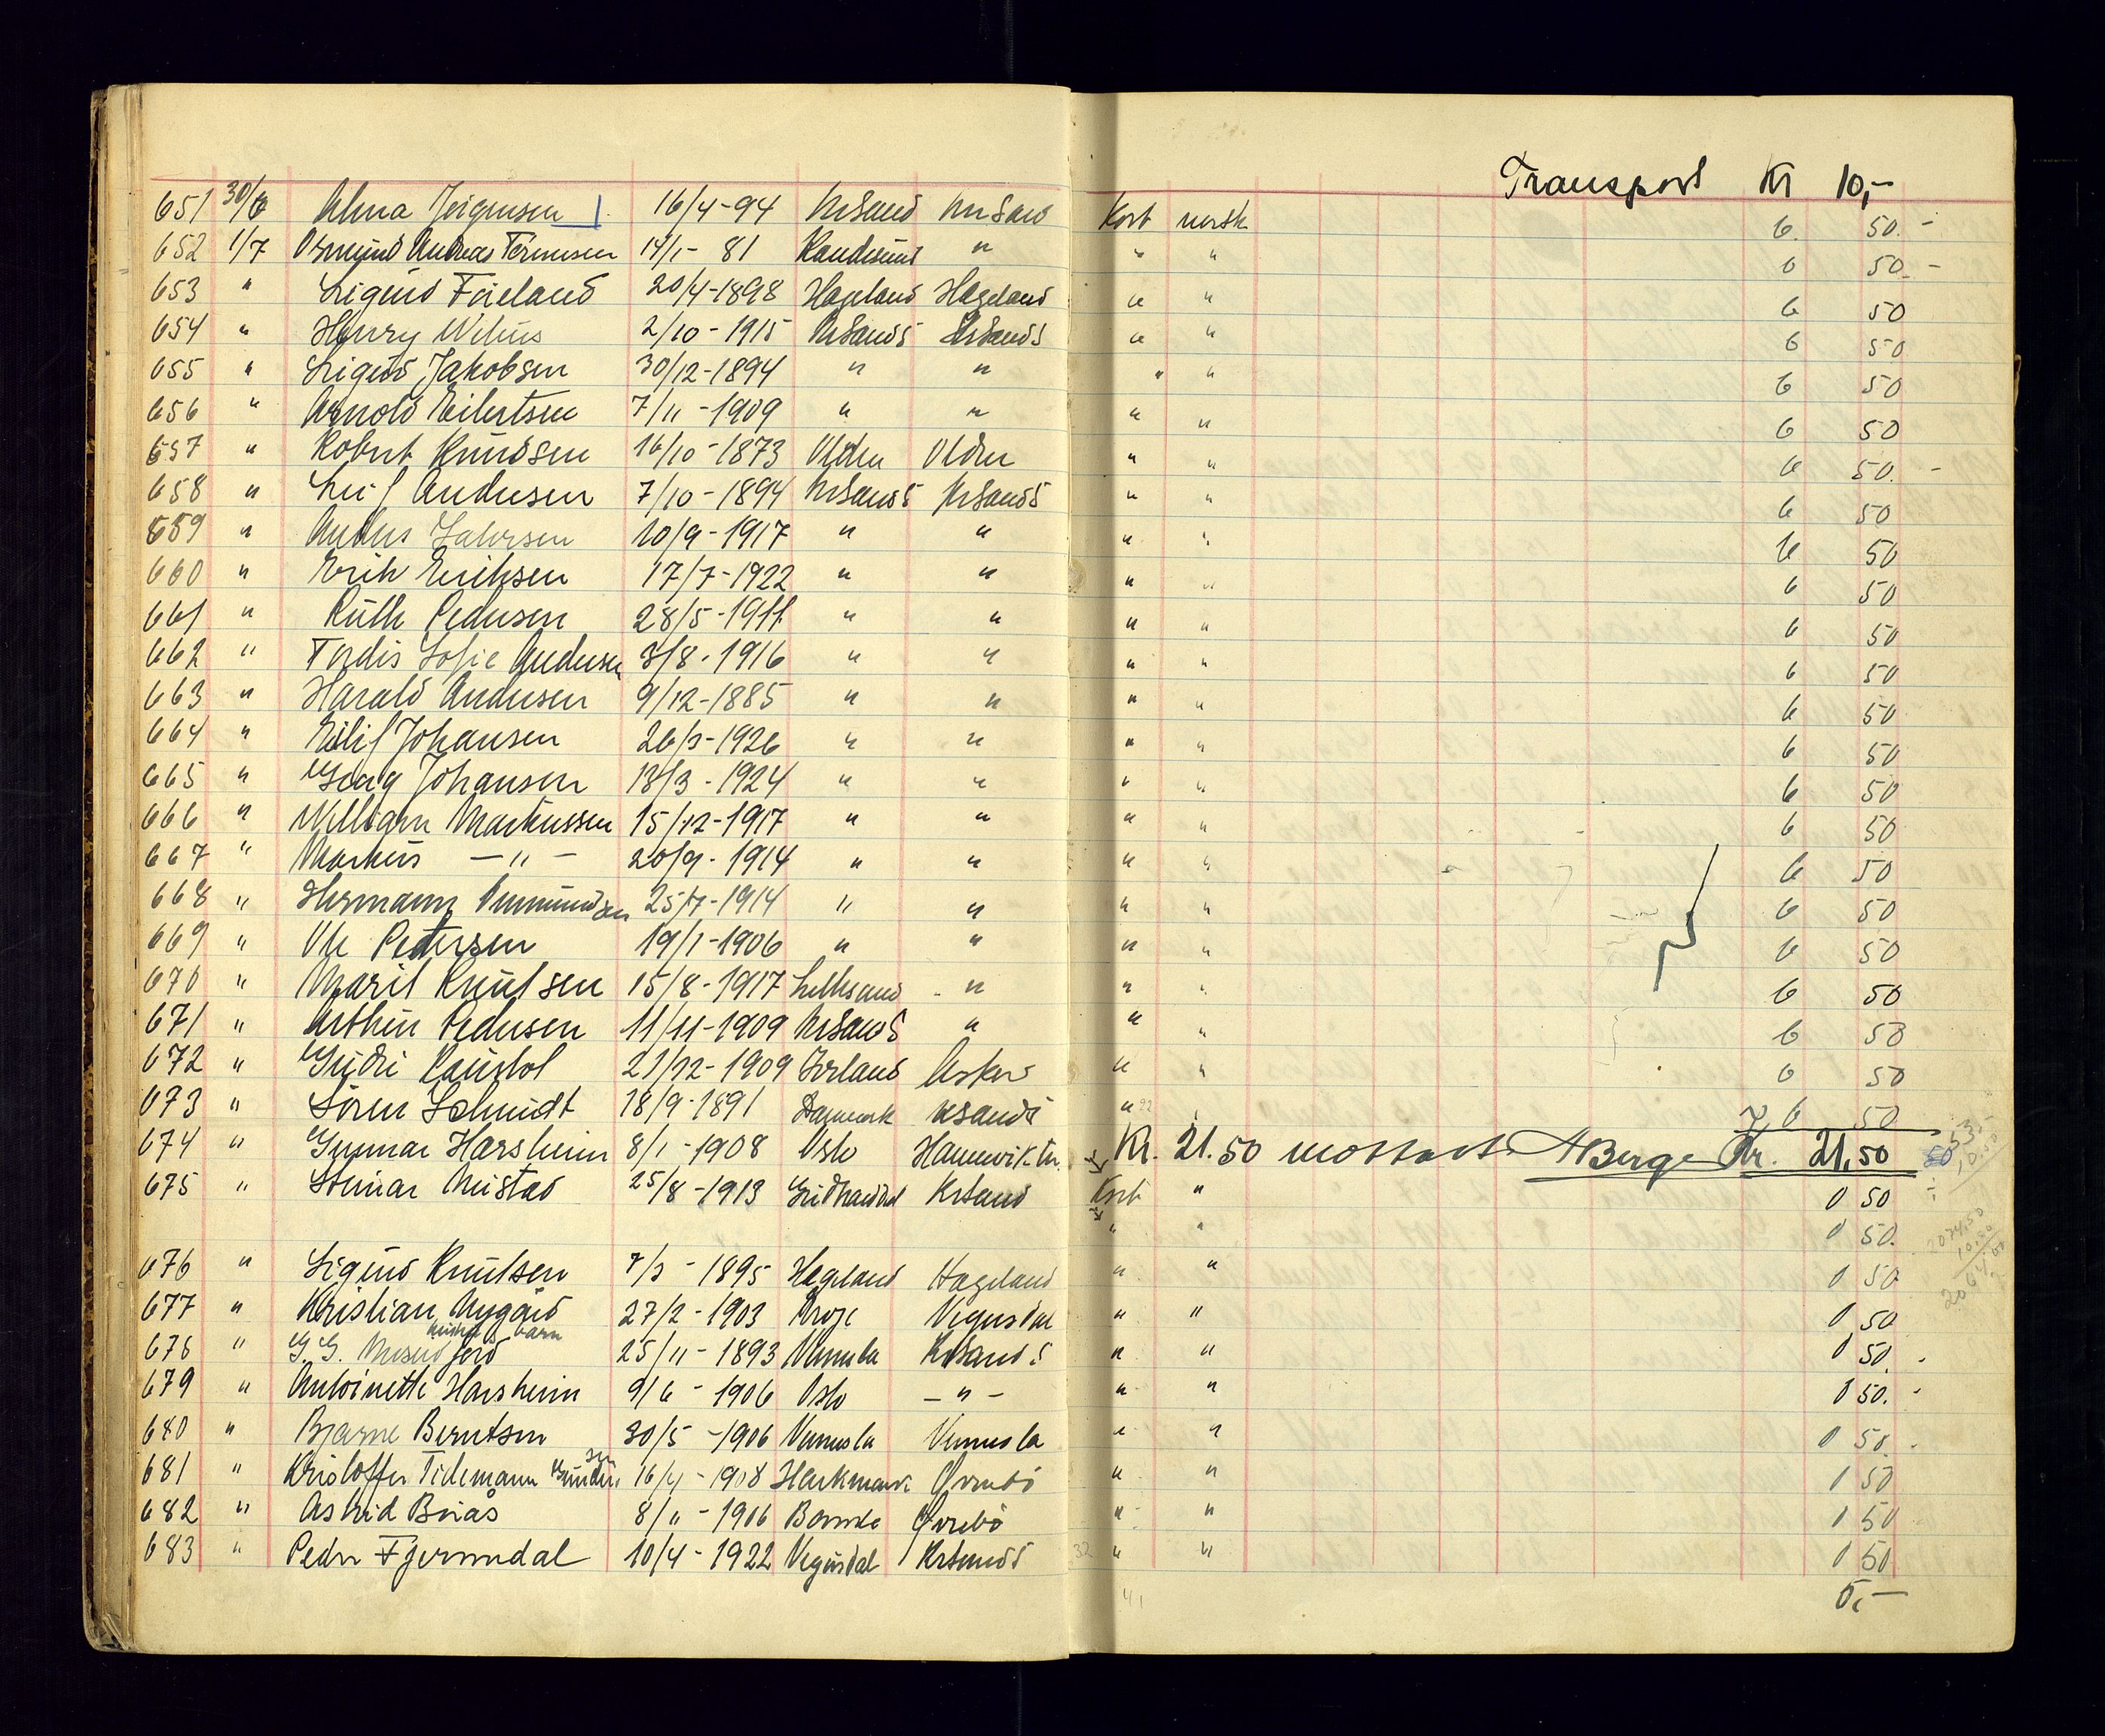 Transport Kr 10,-
651 30/6 Alma Jørgensen 16/4-94 KrSand KrSand Kort norsk 0. 50.-
652 1/7 Osmund Andreas Tørressen 14/1-81 Randesund " " " 0 50.-
653 " Sigurd Føreland 20/4-1898 Hægeland Hægeland " " 0 50
654 " Henry 2/10-1915 KrSandS KrSandS " " 0 50
655 " Sigurd Jakobsen 30/12-1894 " " " " 0 50
656 " Arnold Eilertsen 7/11-1909 " " " " 0 50
657 " Robert Knudsen 16/10-1873 " " 0 50.-
658 " Leif Andersen 7/10-1894 KrSandS KrSandS " " 0 50
659 " Anders Salvesen 10/9-1917 " " " " 0 50
660 " Erik Eriksen 17/7-1922 " " " " 0 50
661 " Ruth Pedersen 28/5-1911 " " " " 0 50
662 " Tordis Sofie Andersen 3/8-1916 " " " " 0 50
663 " Harald Andersen 9/12-1885 " " " " 0 50
664 " Eilif Johansen 26/3-1926 " " " " 0 50
665 " Georg Johansen 13/3-1924 " " " " 0 50
666 " William Markussen 15/12-1917 " " " " 0 50
667 " Markus -"- 20/9-1914 " " " " 0 50
668 " Hermann Ommundsen 25/7-1914 " " " " 0 50
669 " Ole Pettersen 19/1-1906 " " " " 0 50
670 " Marit Knutsen 15/8-1917 Lillesand " " " 0 50
671 " Arthur Pedersen 11/11-1909 KrSandS " " " 0 50
672 " Gudri 21/12-1909 Asker " " 0 50
673 " Sören Schmidt 18/9-1891 Danmark KSandS " " 0 50
674 " Gunnar Harsheim 8/1-1908 Oslo Kr. 21.50 mottatt ABerge Kr. 21,50
675 " Steinar Mustad 25/8-1913 KrSand Kort " 0 50
" " 0 50.
676 " Sigurd Knutsen 7/3-1895 Hægeland Hægeland " " 0 50
677 " Kristian Nygård 27/2-1903 Vegusdal " " 0 50
678 " G. G. Mosfjord 25/11-1893 Vennesla KrSandS " " 0 50.-
679 " Antoinette Harsheim 9/6-1906 Oslo -"- " " 0 50.-
680 " Bjarne Berntsen 30/5-1906 Vennesla Vennesla " " 0 50.-
681 " Kristoffer Tidemann Gundersen 16/4-1908 Harkmark Øvrebö " " 0 50
682 " Astrid Brias 8/11-1906 Bamble Øvrebö " " 0 50
683 " Peder Fjermedal 10/4-1922 Vegusdal KrSandS 32 " " 0 50
41 5,-